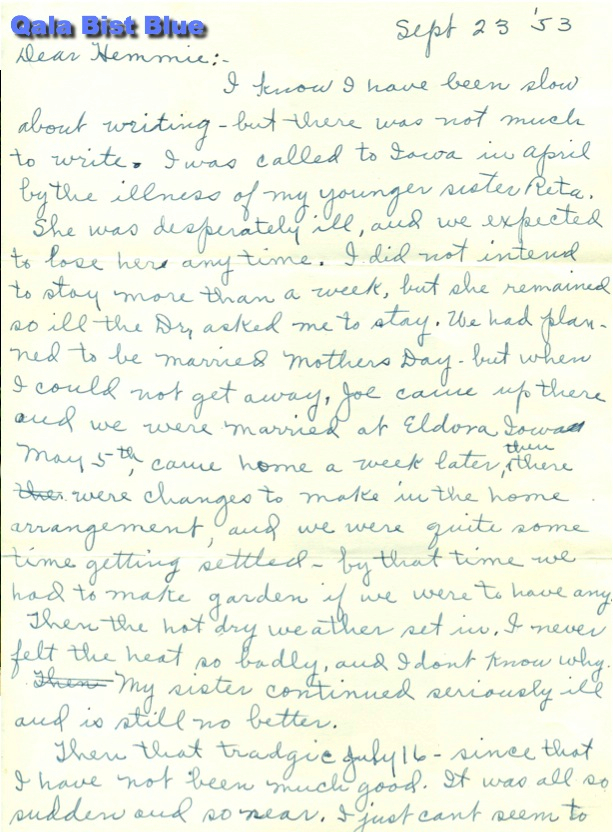 Qala Bist Blue
Sept 23 '53
Dear Hemmie:-
I know I have been slow
about writing - but there was not much
to write. I was called to Iowa in April
by the illness of my younger sister Reta.
She was desperately ill, and we expected
to lose her any time. I did not intend
to stay more than a week, but she remained
so ill the Dr, asked me to stay. We had plan-
ned to be married Mothers Day - but when
I could not get away, Joe came up there
and we were married at Eldora Iowa
May 5th, came home a week later, then there
were changes to make in the home
arrangement, and we were quite some
time getting settled - by that time we
had to make garden if we were to have any.
Then the hot dry weather set in. I never
felt the heat so badly, and I dont know why.
Then My sister continued seriously ill
and is still no better.
Then that tradgic July 16 - since that
I have not been much good. It was all so
sudden and so near. I just cant seem to